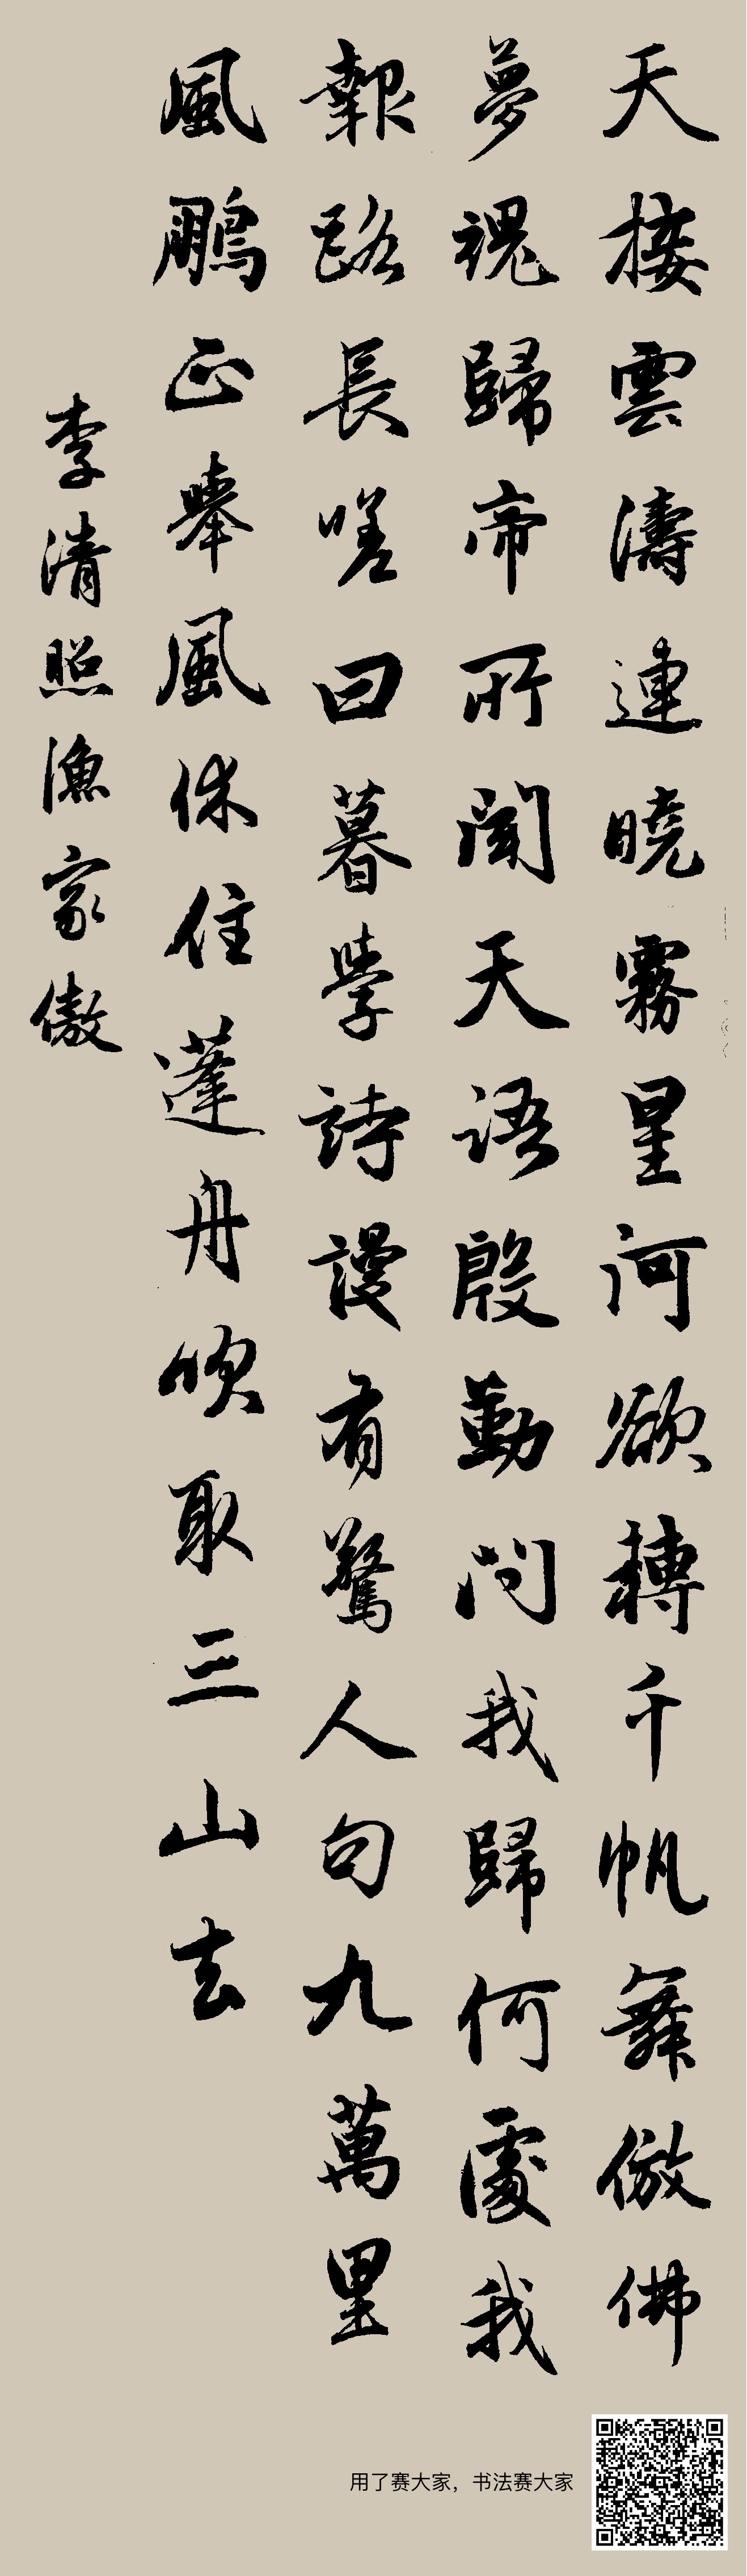 天接雲濤連曉霧星河欲轉千帆舞仿佛
夢魂歸帝所聞天語殷勤問我歸何處我
報路長嗟日暮學詩謾有驚人句九萬里
風鵬正舉風休住蓬舟吹取三山去
李清照漁家傲
用了赛大家，书法赛大家